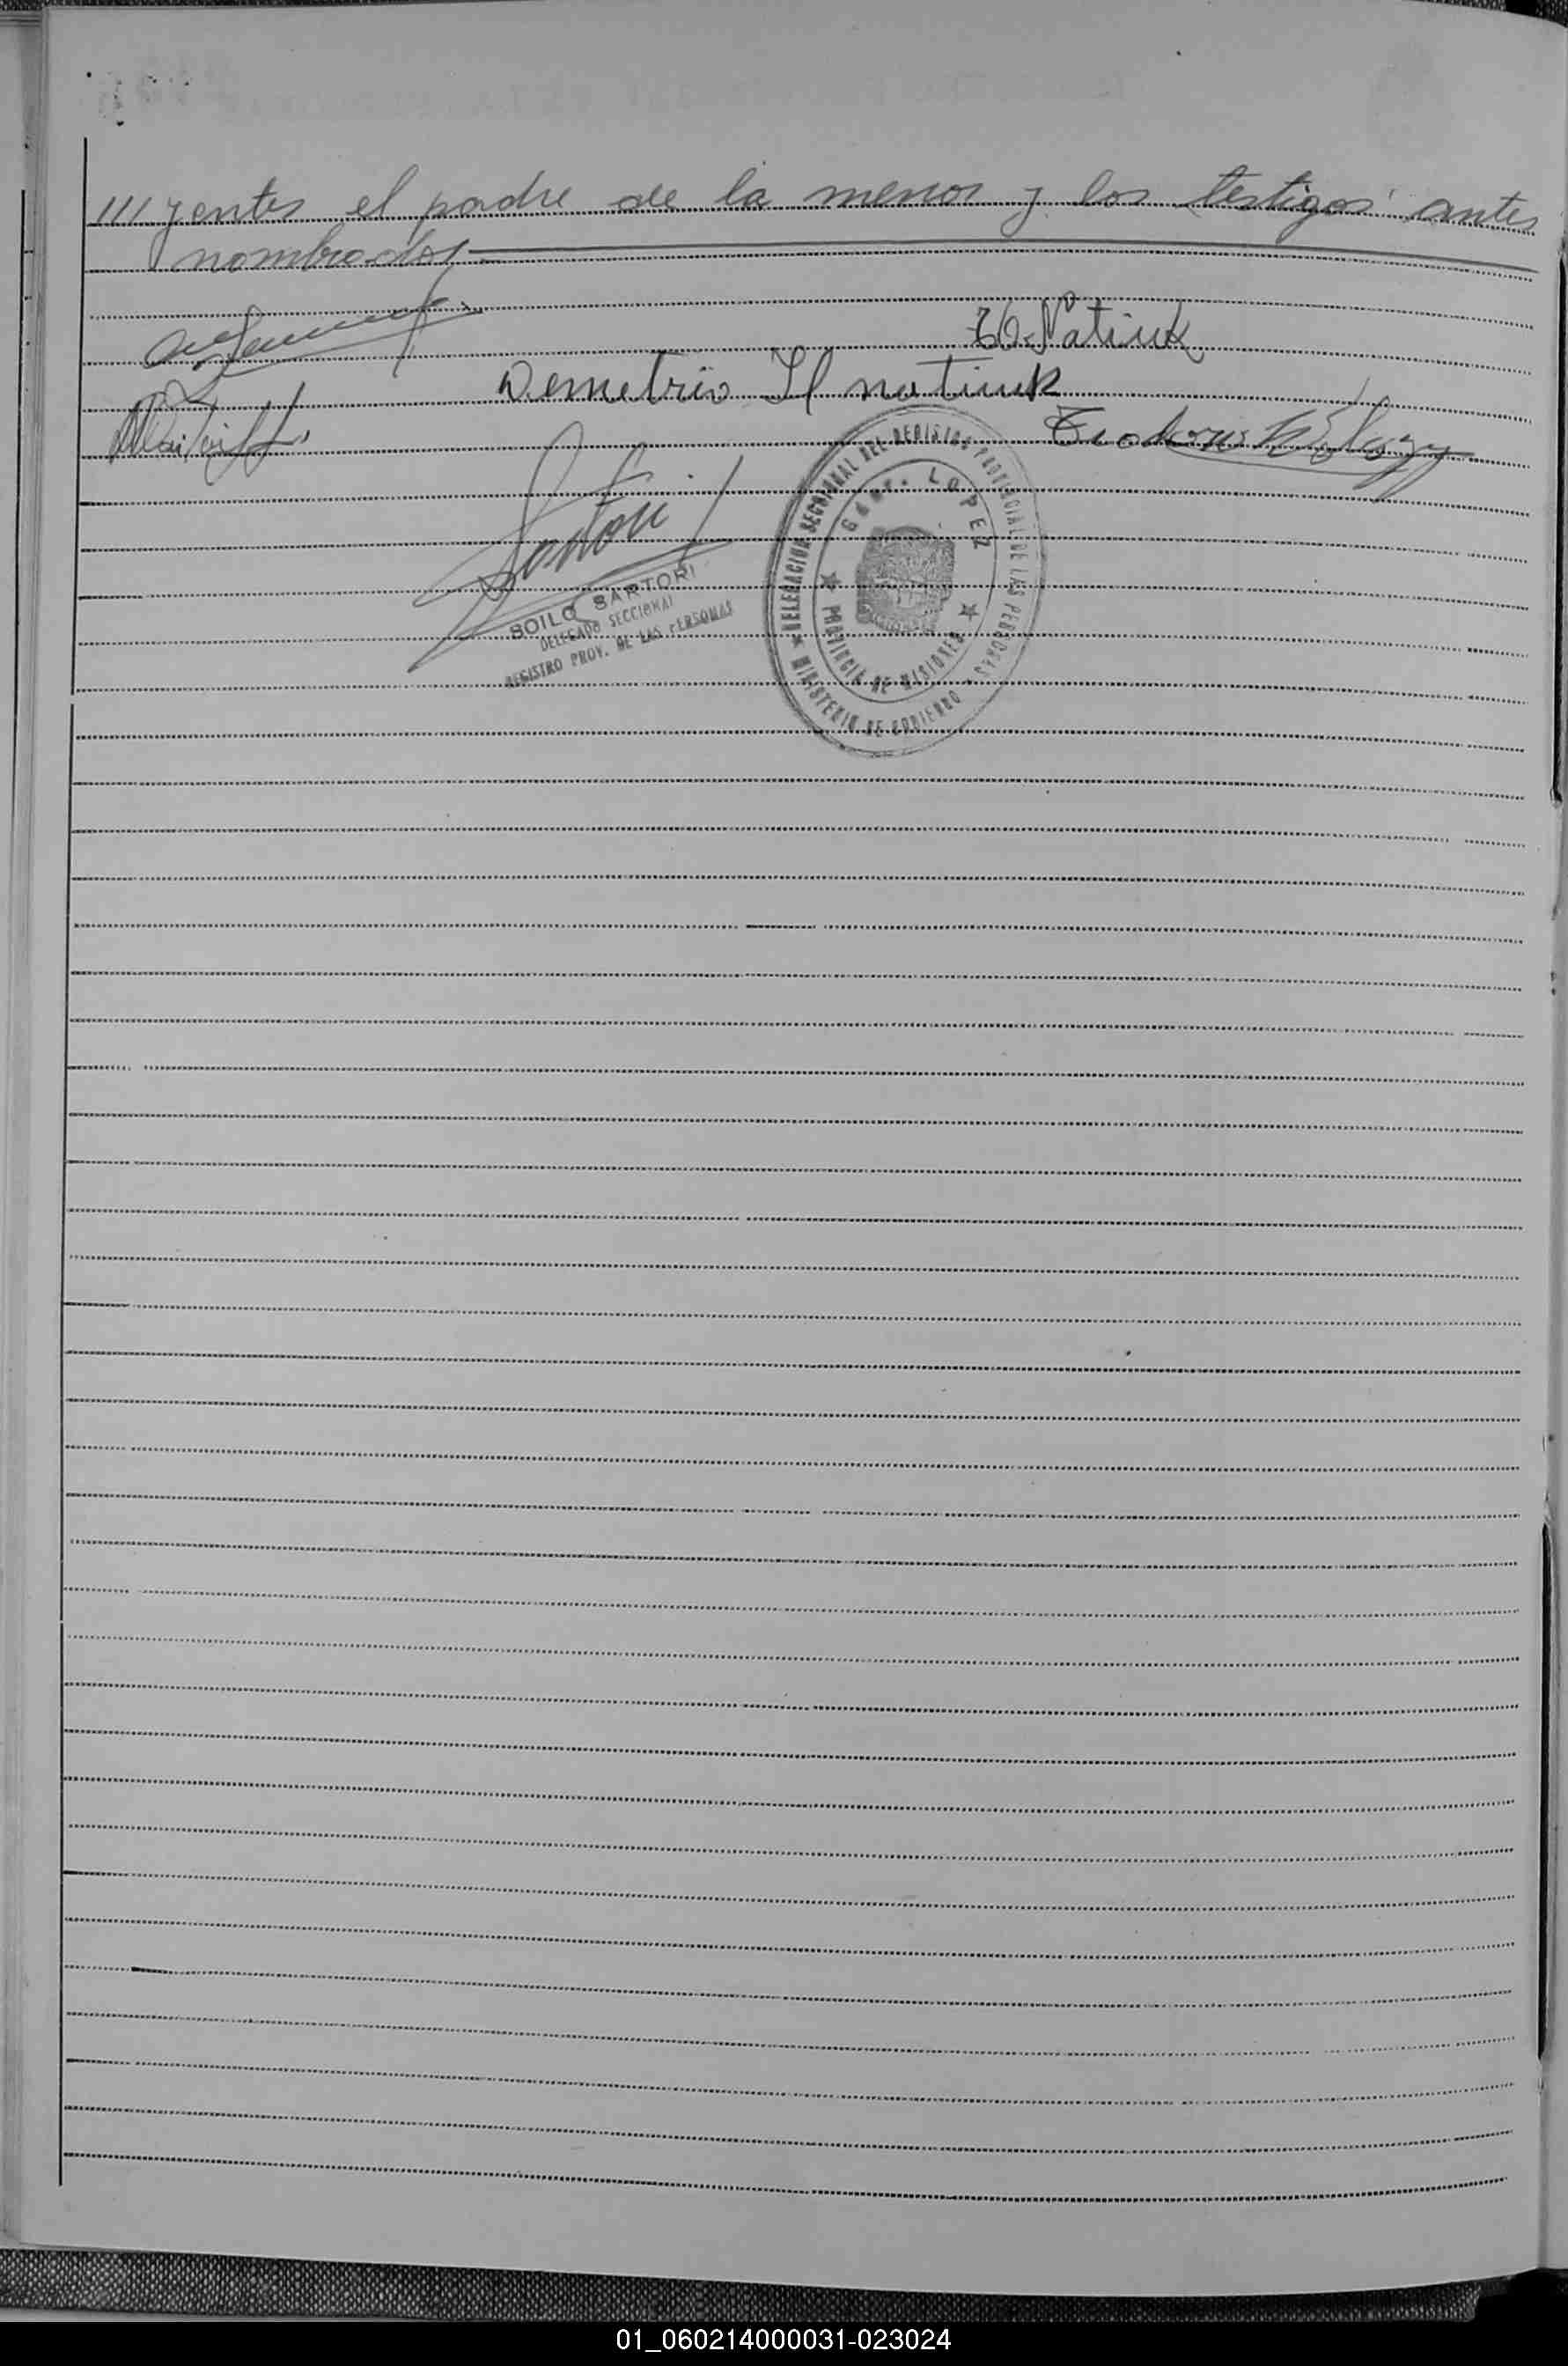 ///yentes el padre de la menor y los testigos antes
nombrados
Demetrio Ilnatiuk
Sartori
SOILO SARTORI
DELEGADO SECCIONAL
REGISTRO PROV. DE LAS PERSONAS
DELEGACION SECCIONAL DEL REGISTRO PROVINCIAL DE LAS PERSONAS
GDOR. LOPEZ
PROVINCIA DE MISIONES
MINISTERIO DE GOBIERNO
01_060214000031-023024